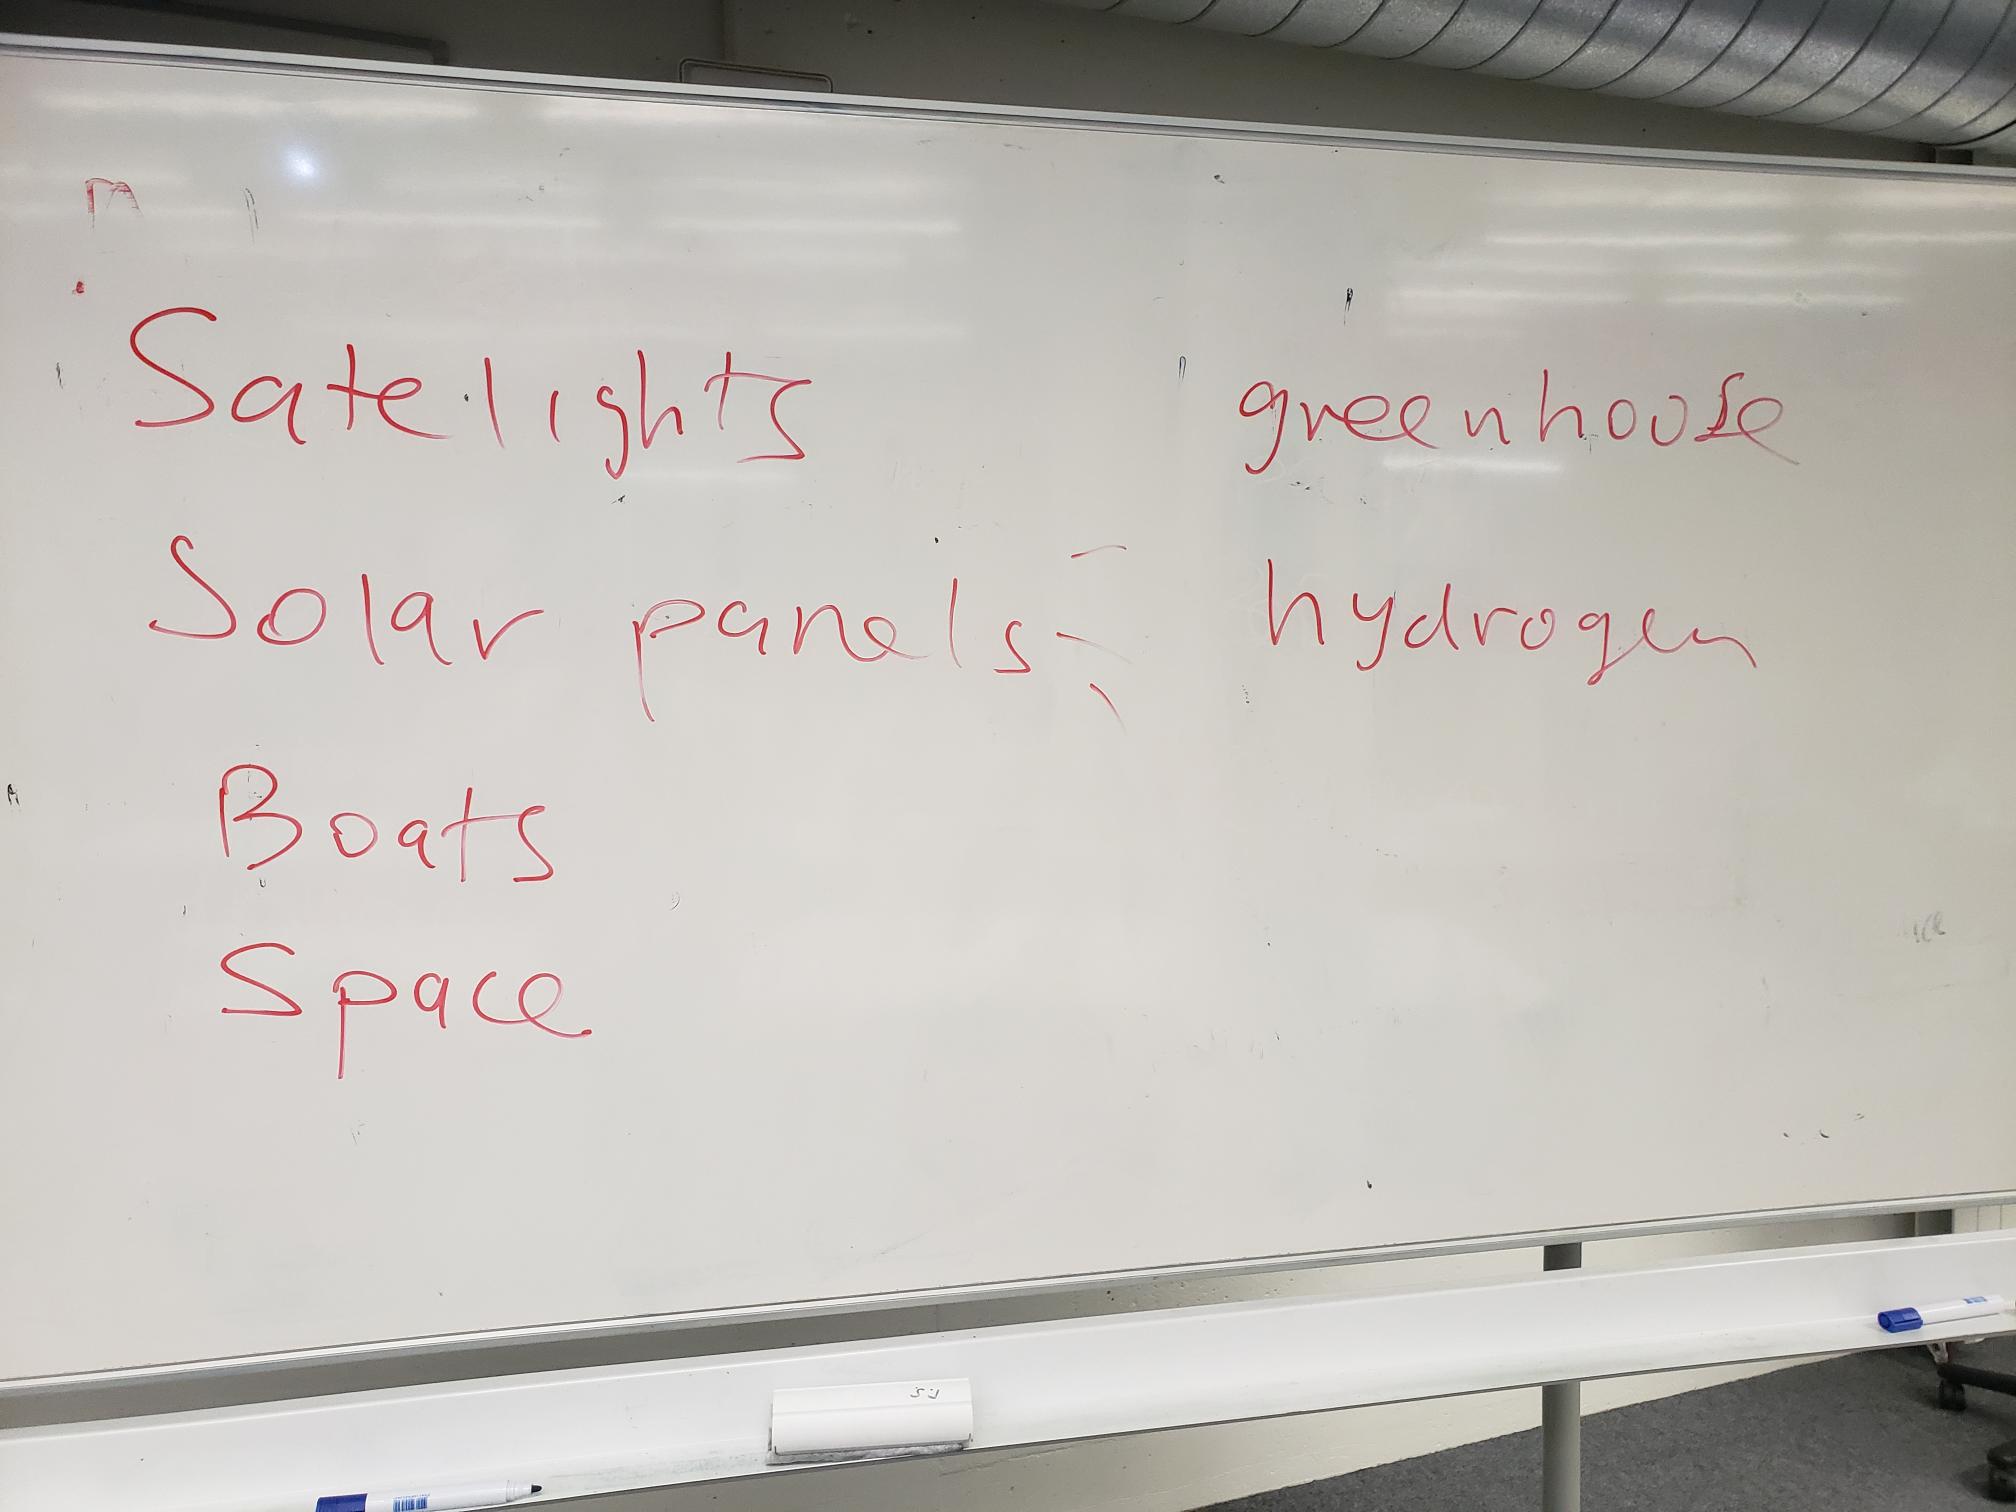 Satelights
Solar panels
Boats
Space
greenhouse
hydrogen